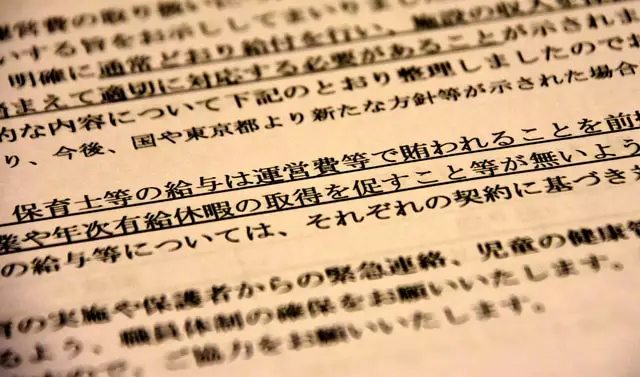 運営費の取り扱い
いする旨をお示ししてまいりまし
明確に通常どおり給付を行い、施設の収入を
踏まえて適切に対応する必要があることが示されま
的な内容について下記のとおり整理しましたのでお
り、今後、国や東京都より新たな方針等が示された場合
保育士等の給与は運営費等で賄われることを前提
業や年次有給休暇の取得を促すこと等が無いよう
の給与等については、それぞれの契約に基づき
の実施や保護者からの緊急連絡、児童の健康管
るよう、職員体制の確保をお願いいたします。
ので、ご協力をお願いいたします。